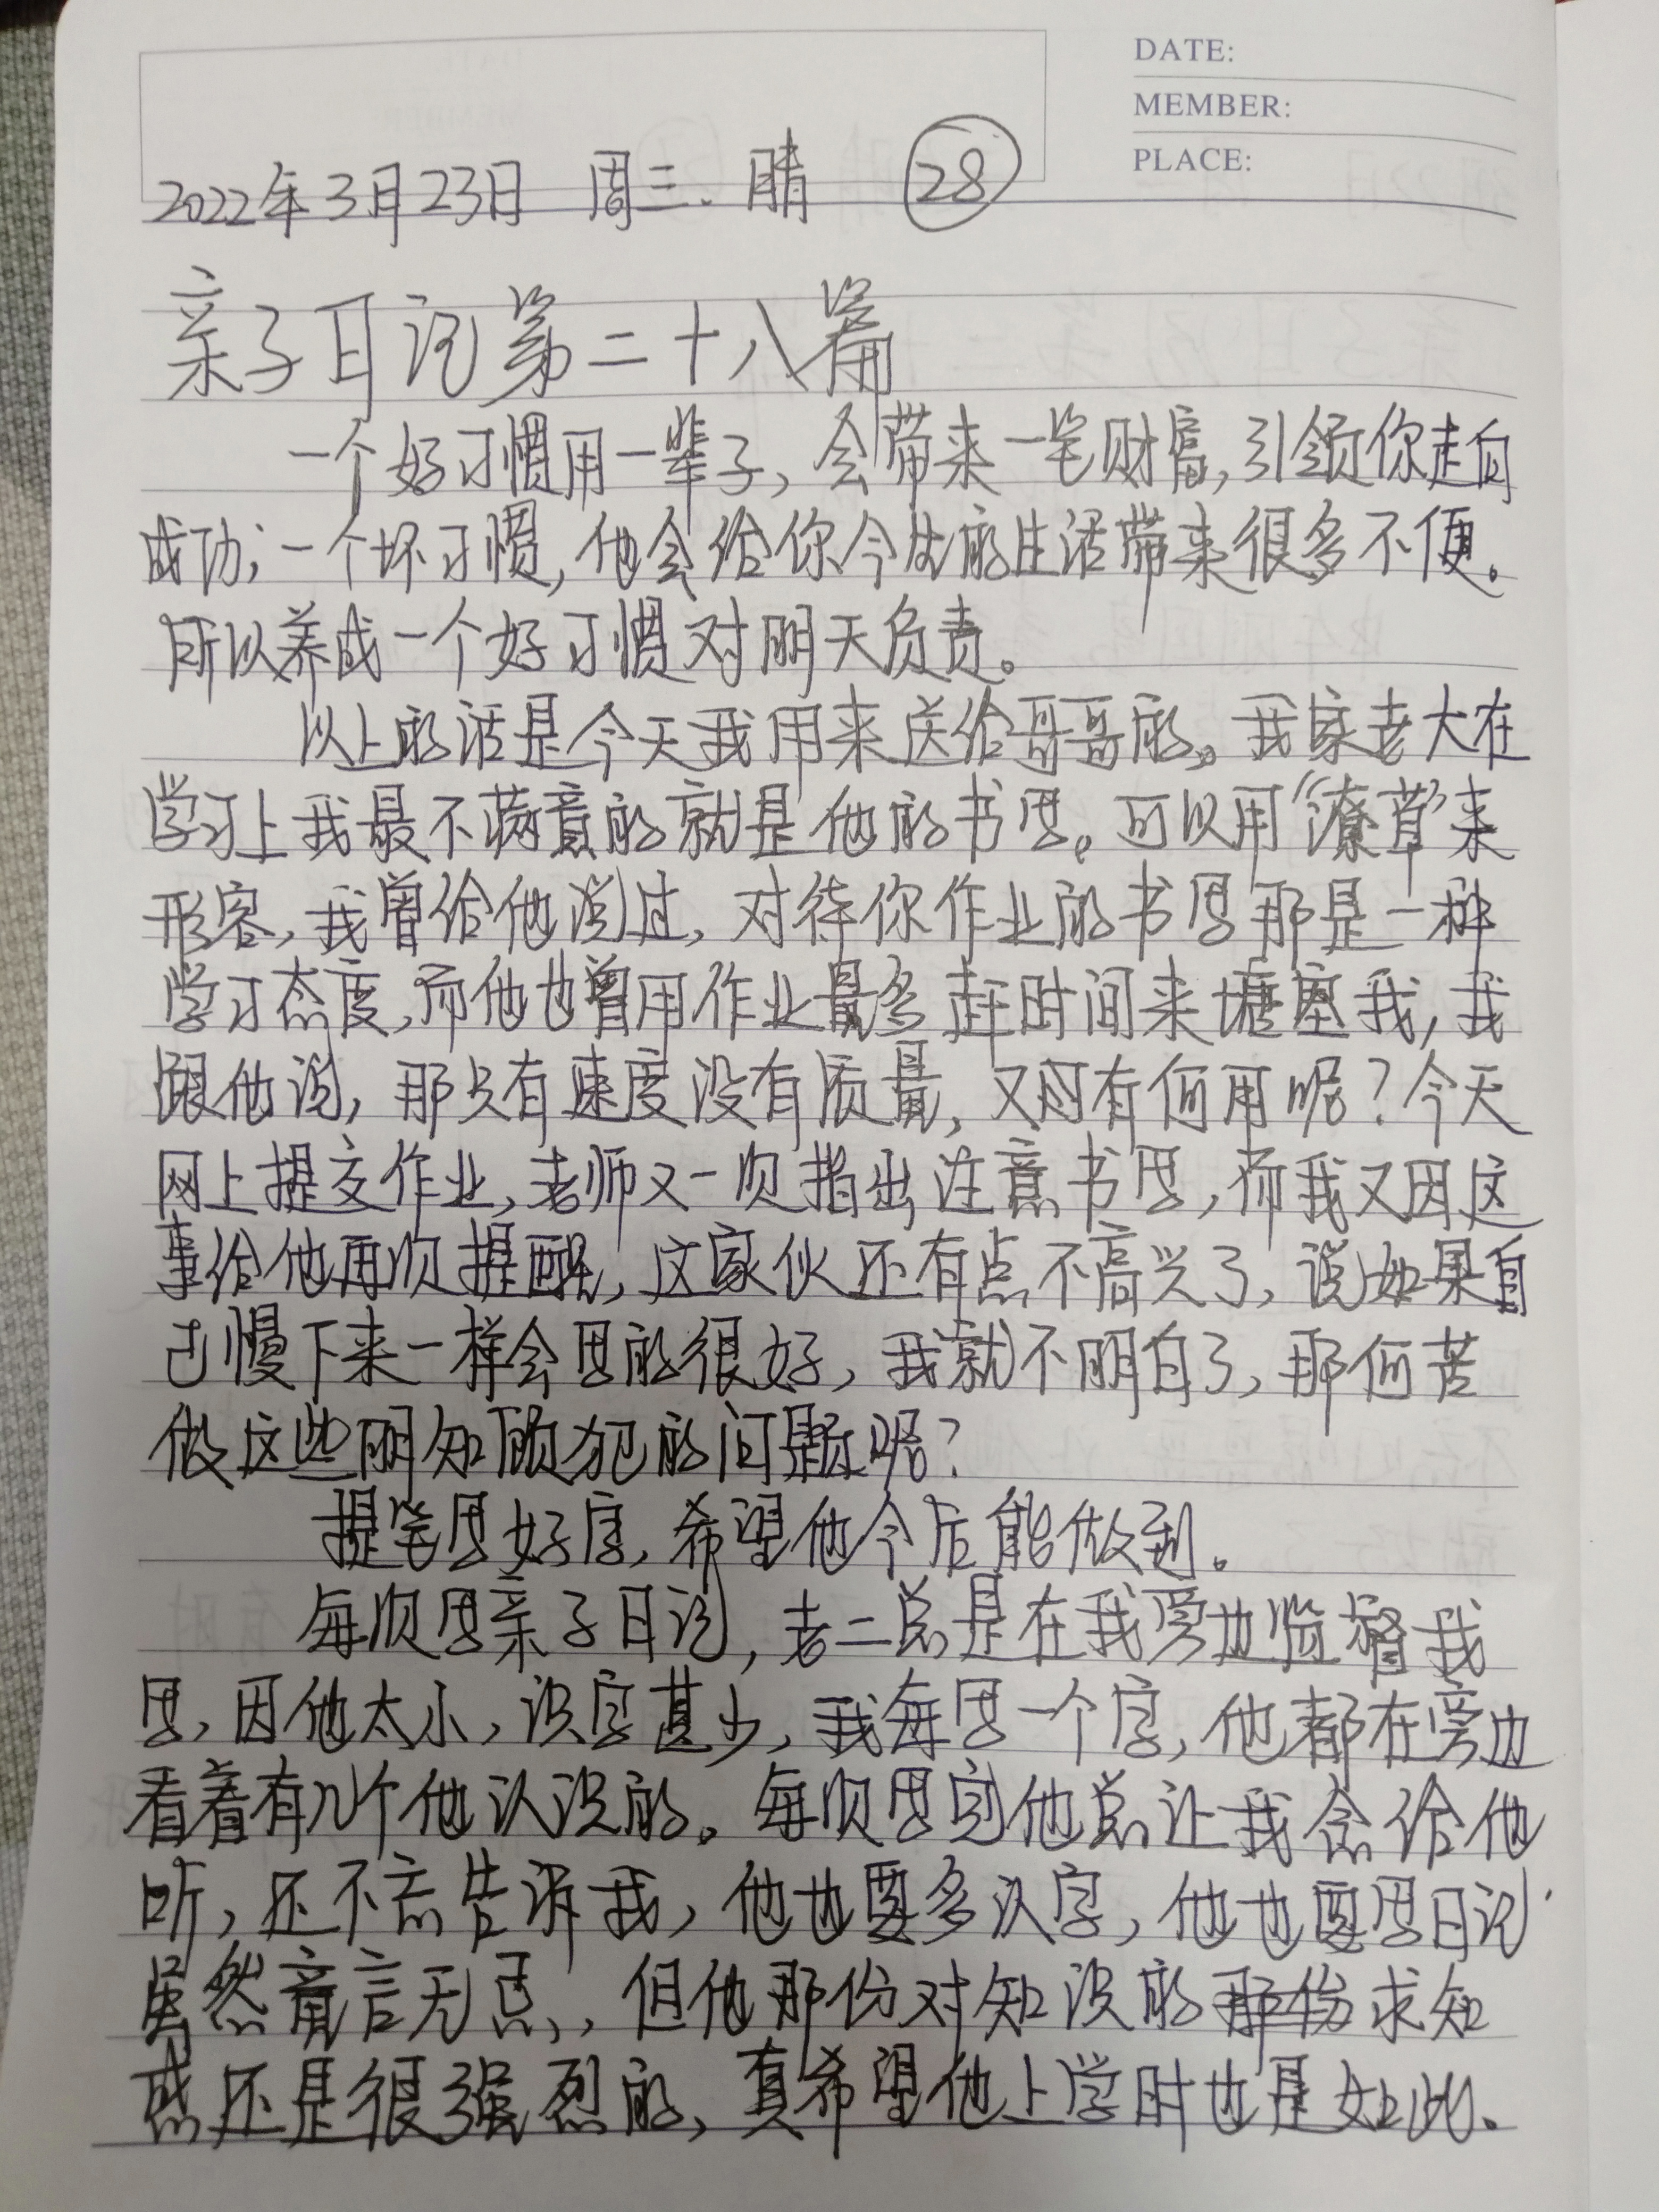 DATE:
MEMBER:
PLACE:
2022年3月23日 周三. 晴 28
亲子日记第二十八篇
一个好习惯用一辈子,会带来一笔财富,引领你走向
成功;一个坏习惯,他会给你今后的生活带来很多不便。
所以养成一个好习惯对明天负责。
以上的话是今天我用来送给哥哥的。我家老大在
学习上我最不满意的就是他的书写。可以用“潦草”来
形容,我曾给他说过,对待你作业的书写那是一种
学习态度,而他也曾用作业最多赶时间来搪塞我,我
跟他说,那只有速度没有质量,又有何用呢?今天
网上提交作业,老师又一次指出注意书写,而我又因这
事给他再次提醒,这家伙还有点不高兴了,说如果自
己慢下来一样会写的很好,我就不明白了,那何苦
做这些明知顾犯的问题呢?
提笔写好字,希望他今后能做到。
每次写亲子日记,老二总是在我旁边监督我
写,因他太小,识字甚少,我每写一个字,他都在旁边
看着有几个他认识的。每次写完他总让我念给他
听,还不忘告诉我,他也要多认字,他也要写日记
虽然童言无忌,,但他那份对知识的那份求知
惑还是很强烈的,真希望他上学时也是如此.